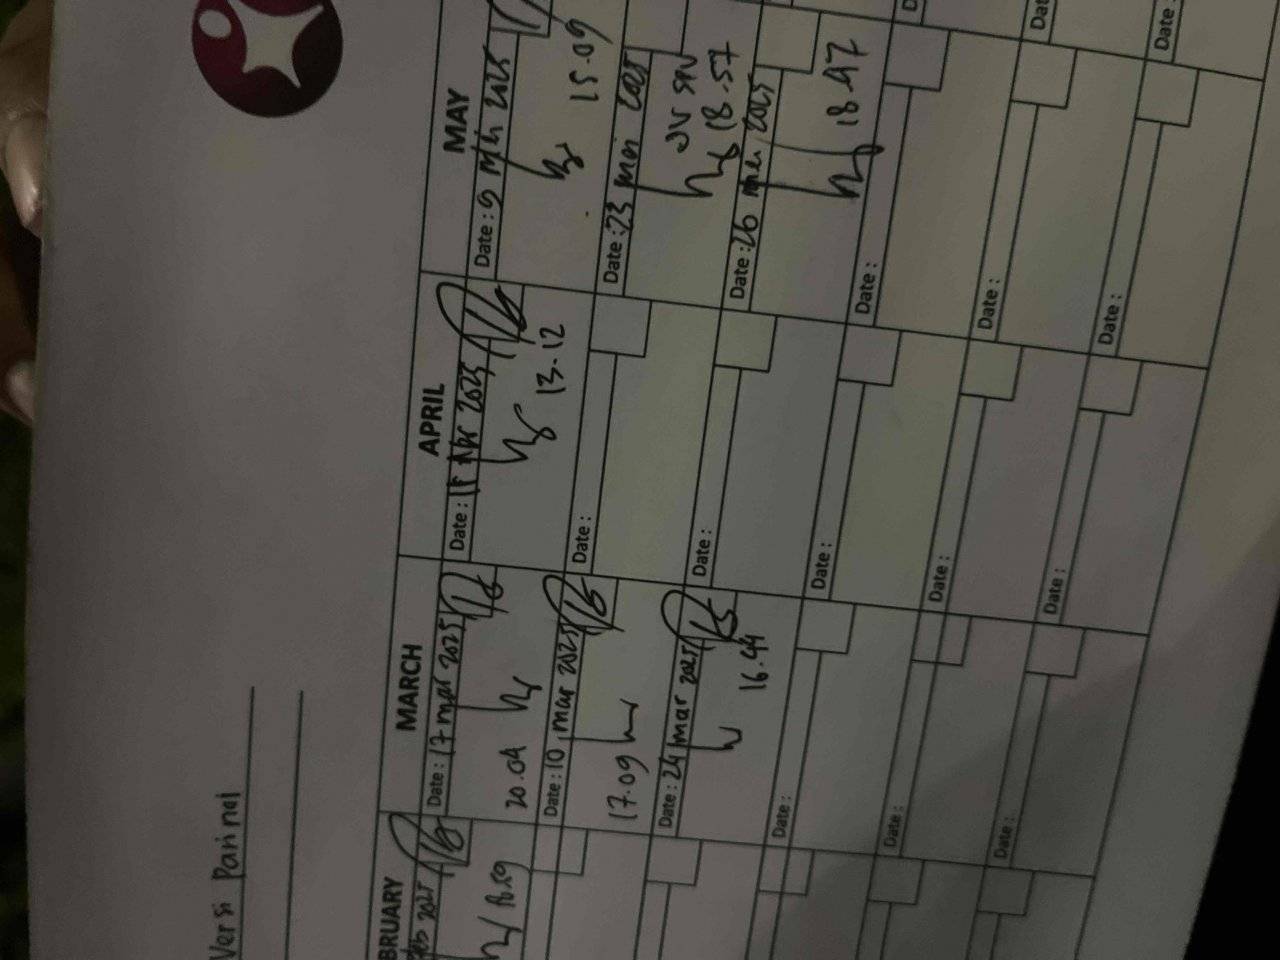 Versi Parinai
BRUARY
Feb 2025
18.59
MARCH
Date : 17 mar 2025
20.04
Date : 10 mar 2025
17.09
Date : 24 mar 2025
16.44
Date :
Date :
Date :
APRIL
Date : Apr 2025
13.12
Date :
Date :
Date :
Date :
Date :
MAY
Date : 9 Mei 2025
15.09
Date : 23 mei 2025
SPV
18.57
Date : 26 mei 2025
18.47
Date :
Date :
Date :
D
Date
Date :